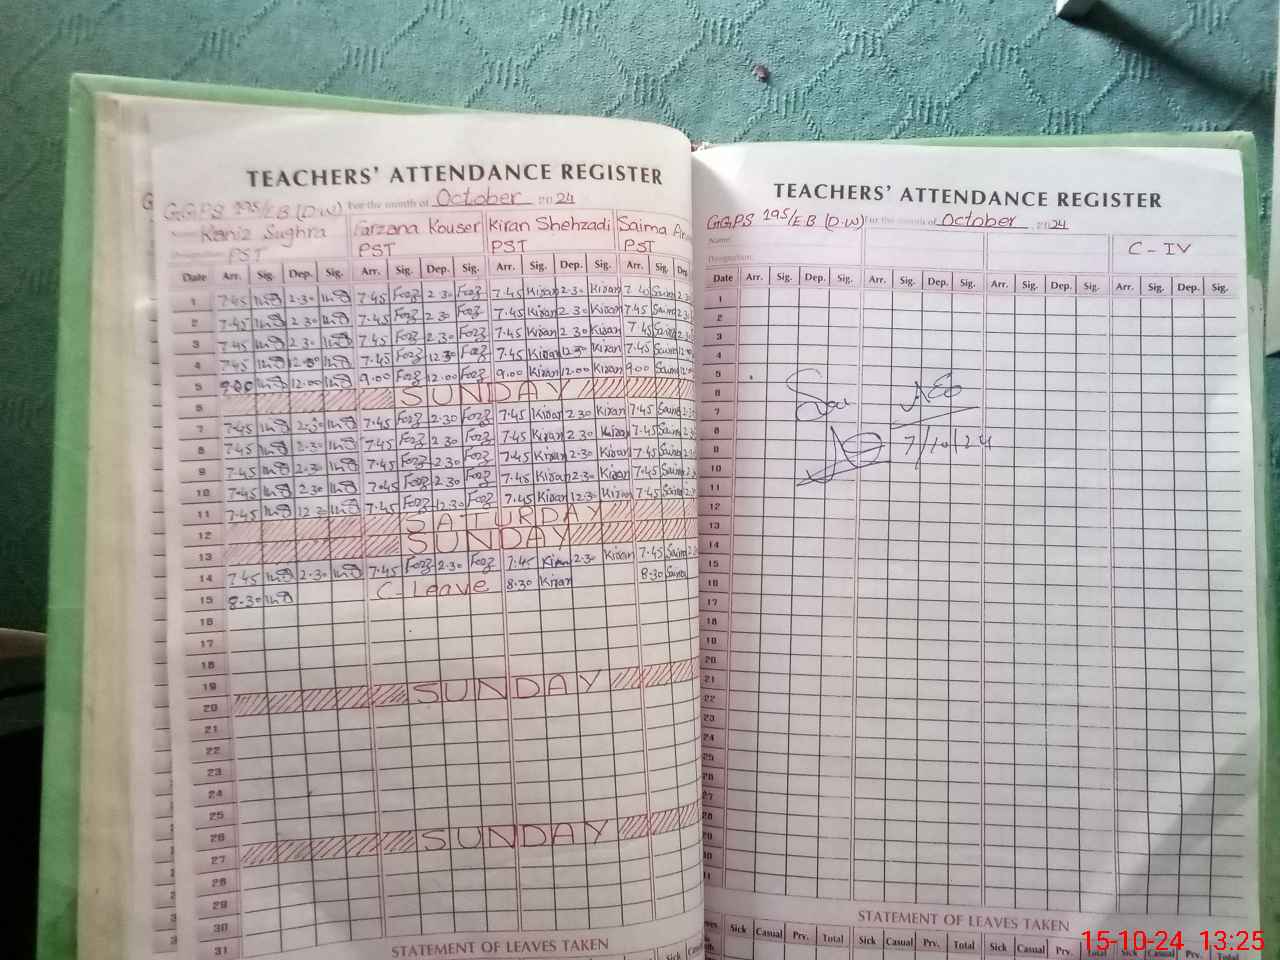 TEACHERS' ATTENDANCE REGISTER
G.G.P.S 195/E.B (D.W) For the month of October 2024
Name: Kaniz Sughra Farzana Kouser Kiran Shehzadi Saima
Designation: PST PST PST PST
Date Arr. Sig. Dep. Sig. Arr. Sig. Dep. Sig. Arr. Sig. Dep. Sig. Arr. Sig. Dep.
1 7.45 2.30 7.45 2.30 7.45 Kiran 2.30 Kiran 7.45 Saima 2.3
2 7.45 2.30 7.45 2.30 7.45 Kiran 2.30 Kiran 7.45 Saima 2.3
3 7.45 2.30 7.45 2.30 7.45 Kiran 2.30 Kiran 7.45 Saima 2.3
4 7.45 12.30 7.45 12.30 7.45 Kiran 12.30 Kiran 7.45 Saima
5 9.00 12.00 9.00 12.00 9.00 Kiran 12.00 Kiran 9.00 Saima
6 SUNDAY
7 7.45 2.30 7.45 2.30 7.45 Kiran 2.30 Kiran 7.45 Saima 2.3
8 7.45 2.30 7.45 2.30 7.45 Kiran 2.30 Kiran 7.45 Saima
9 7.45 2.30 7.45 2.30 7.45 Kiran 2.30 Kiran 7.45 Saima
10 7.45 2.30 7.45 2.30 7.45 Kiran 2.30 Kiran 7.45 Saima
11 7.45 12.30 7.45 12.30 7.45 Kiran 12.30 Kiran 7.45 Saima
12 SATURDAY
13 SUNDAY
14 7.45 2.30 7.45 2.30 7.45 Kiran 2.30 Kiran 7.45 Saima
15 8.30 C-Leave 8.30 Kiran 8.30 Saima
16
17
18
19
20 SUNDAY
21
22
23
24
25
26
27 SUNDAY
28
29
30
31
STATEMENT OF LEAVES TAKEN
TEACHERS' ATTENDANCE REGISTER
G.G.P.S 195/E.B (D.W) For the month of October 2024
Name: C-IV
Designation:
Date Arr. Sig. Dep. Sig. Arr. Sig. Dep. Sig. Arr. Sig. Dep. Sig. Arr. Sig. Dep. Sig.
1
2
3
4
5
6 AEO
7
8
9 7/10/24
10
11
12
13
14
15
16
17
18
19
20
21
22
23
24
25
26
27
28
29
30
31
STATEMENT OF LEAVES TAKEN
Sick Casual Prv. Total Sick Casual Prv. Total Sick Casual Prv. Total Sick Casual Prv. Total
15-10-24 13:25